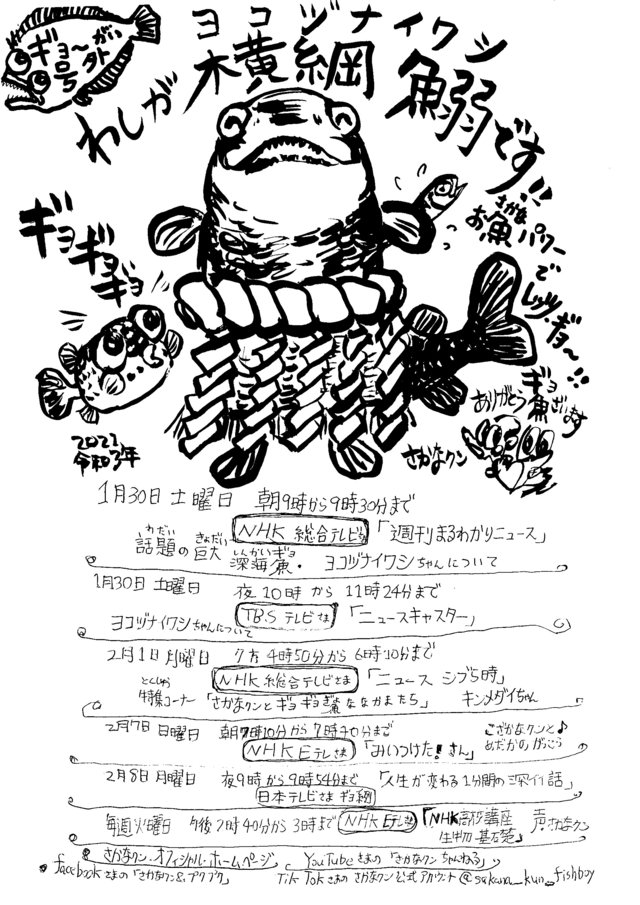 ギョ〜がい
号外
ヨコヅナイワシ
わしが 横綱 鰯です!!
さかな
お魚パワー
で
レッツ、ギョ〜!!
ギョ
ギョ
ギョ
ギョ
ありがとう魚ざいます
さかなクン
2021
令和3年
1月30日 土曜日 朝9時から9時30分まで
NHK 総合テレビさま 「週刊まるわかりニュース」
わだい きょだい しんかいギョ
話題の巨大 深海魚・ヨコヅナイワシちゃんについて
1月30日 土曜日 夜10時から 11時24分まで
TBSテレビさま 「ニュースキャスター」
ヨコヅナイワシちゃんについて
2月1日 月曜日 夕方 4時50分から 6時10分まで
NHK 総合テレビさま 「ニュース シブ5時」
とくしゅう
特集コーナー 「さかなクンと ギョギョ魚なかまたち」 キンメダイちゃん
2月7日 日曜日 朝7時10分から7時40分まで
NHK Eテレさま 「みいつけた!さん」
こざかなクンと♪
めだかのがっこう
2月8日 月曜日 夜9時から9時54分まで 「人生が変わる1分間の深イイ話」
日本テレビさま ギョ網
毎週火曜日 午後2時40分から3時まで NHK Eテレさま 「NHK高校講座
生物基礎」 声 さかなクン
さかなクン・オフィシャル・ホームページ
YouTubeさまの「さかなクンちゃんねる」
facebookさまの「さかなクン&プクプク」
TikTokさまの さかなクン公式アカウント@sakana_kun_fishboy